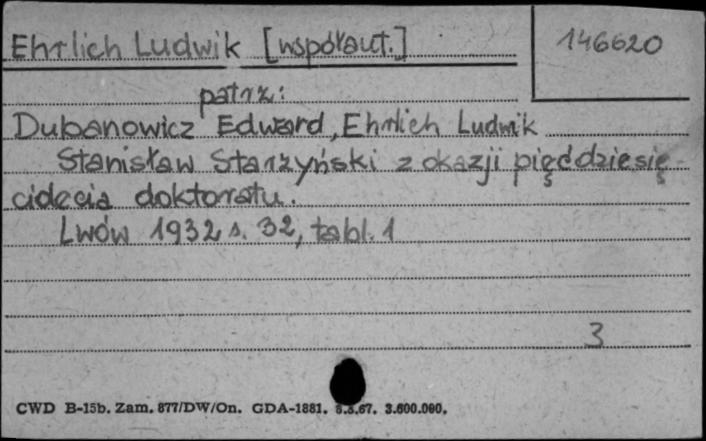 Ehrlich Ludwik [współaut.]
146620
patrz:
Dubanowicz Edward, Ehrlich Ludwik
Stanisław Starzyński z okazji pięćdziesię-
ciolecia doktoratu.
Lwów 1932 s. 32, tabl. 1
3
CWD B-15b. Zam. 877/DW/On. GDA-1881. 8.3.67. 3.600.000.